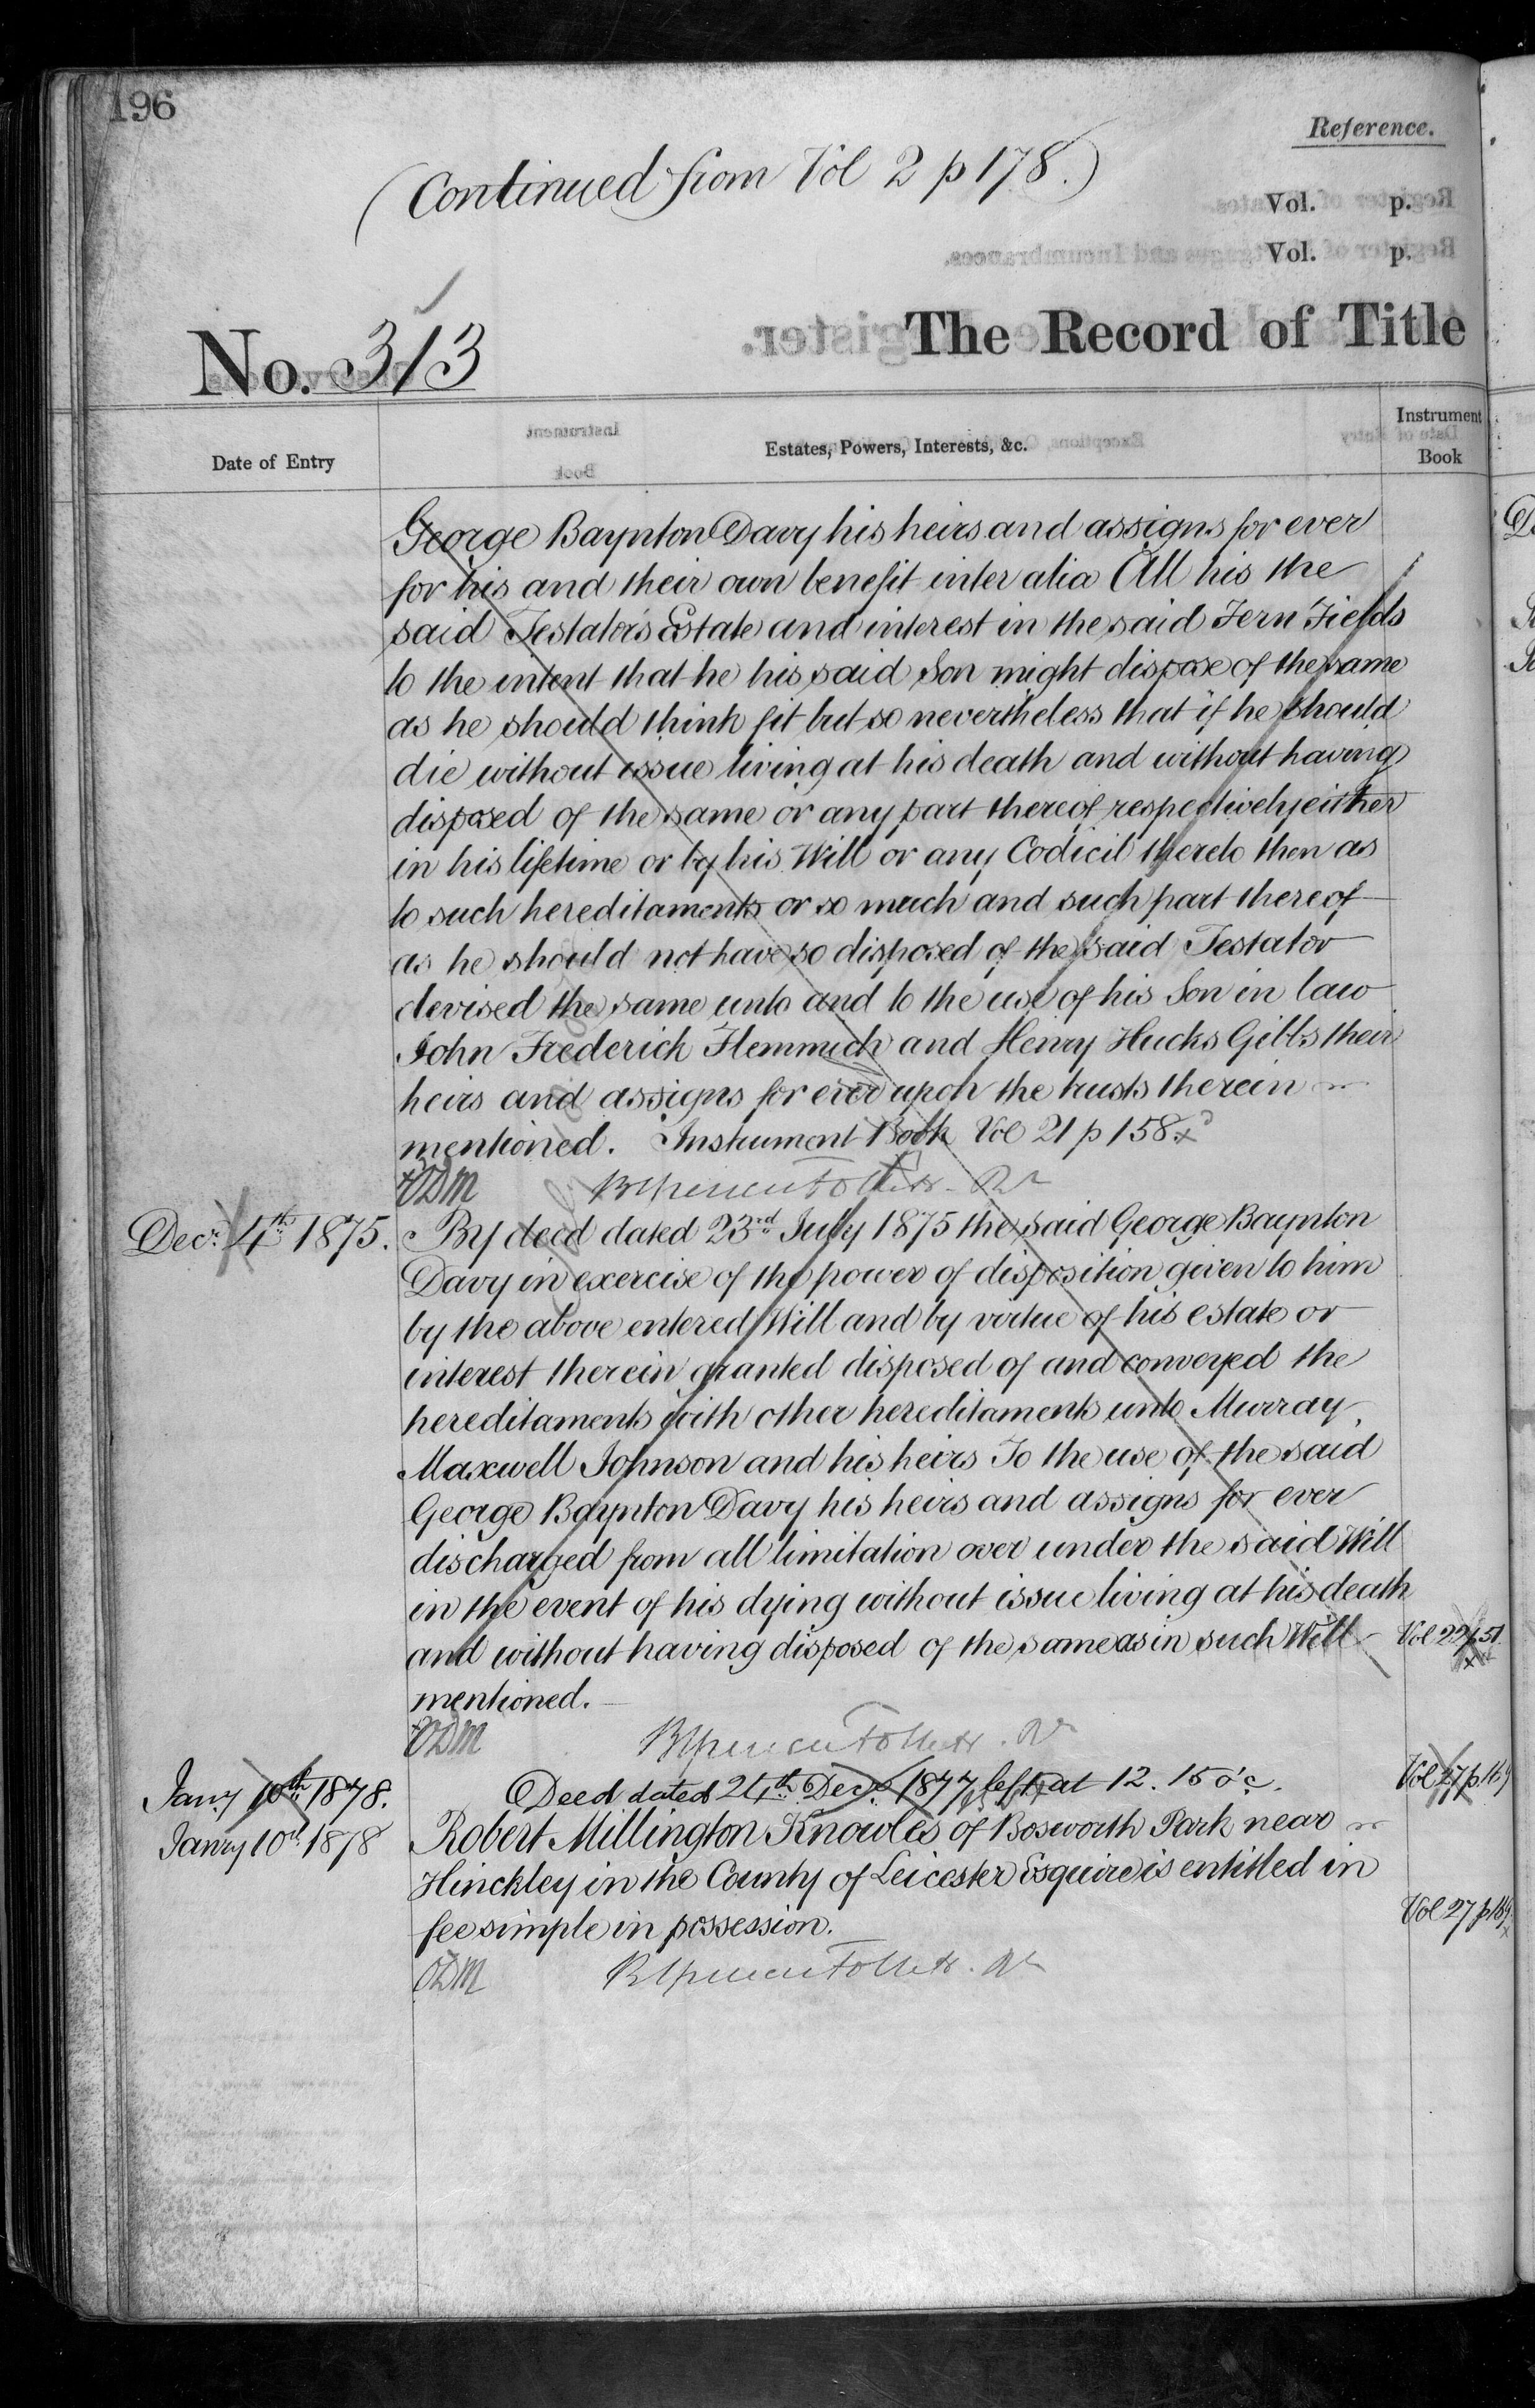 196
Reference.
(Continued from Vol 2 p 178.)
Vol. p.
Vol. p.
No. 313
The Record of Title
Date of Entry
Estates, Powers, Interests, &c.
Instrument
Book
George Baynton Davy his heirs and assigns for ever
for his and their own benefit inter alia All his the
said Testator's Estate and interest in the said Fern Fields
to the intent that he his said Son might dispose of the same
as he should think fit but so nevertheless that if he should
die without issue living at his death and without having
disposed of the same or any part thereof respectively either
in his lifetime or by his Will or any Codicil thereto then as
to such hereditaments or so much and such part thereof
as he should not have so disposed of the said Testator
devised the same unto and to the use of his Son in law
John Frederick Flemmich and Henry Hucks Gibbs their
heirs and assigns for ever upon the trusts therein
mentioned. Instrument Book Vol 21 p 158
ODM
Decr. 4th 1875. By deed dated 23rd July 1875 the said George Baynton
Davy in exercise of the power of disposition given to him
by the above entered Will and by virtue of his estate or
interest therein granted disposed of and conveyed the
hereditaments with other hereditaments unto Murray
Maxwell Johnson and his heirs To the use of the said
George Baynton Davy his heirs and assigns for ever
discharged from all limitation over under the said Will
in the event of his dying without issue living at his death
and without having disposed of the same as in such Will Vol 22 p 51.
mentioned.
ODM
Jany 10th 1878. Deed dated 24th Decr. 1877 left at 12.15 o'c. Vol 27 p 169
Janry 10th 1878 Robert Millington Knowles of Bosworth Park near
Hinckley in the County of Leicester Esquire is entitled in
fee simple in possession. Vol 27 p 169
ODM